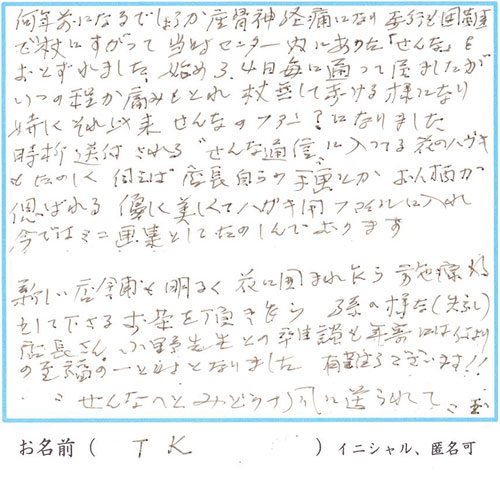 何年前になるでしょうか座骨神経痛になり歩行も困難
で杖にすがって当時センター内にあった「せんな」を
おとずれました。始め3、4日毎に通って居ましたが
いつの程か痛みもとれ杖無しで歩ける様になり
嬉しくそれ以来せんなのファン?になりました
時折送付される"せんな通信"に入ってる花のハガキ
もたのしく伺えば店長自らの手画とか お人柄が
偲ばれる 優しく美しくてハガキ用ファイルに入れ
今ではミニ画集としてたのしんでおります
新しい店舗も明るく花に囲まれ乍ら
をして下さるお茶を頂き乍ら 孫の様な(失礼)
店長さん、小野先生との雑談も年寄には何より
の至福の一ときとなりました 有難うございます!!
"せんなへとみどりの風に送られて"
お名前( T K )イニシャル、匿名可